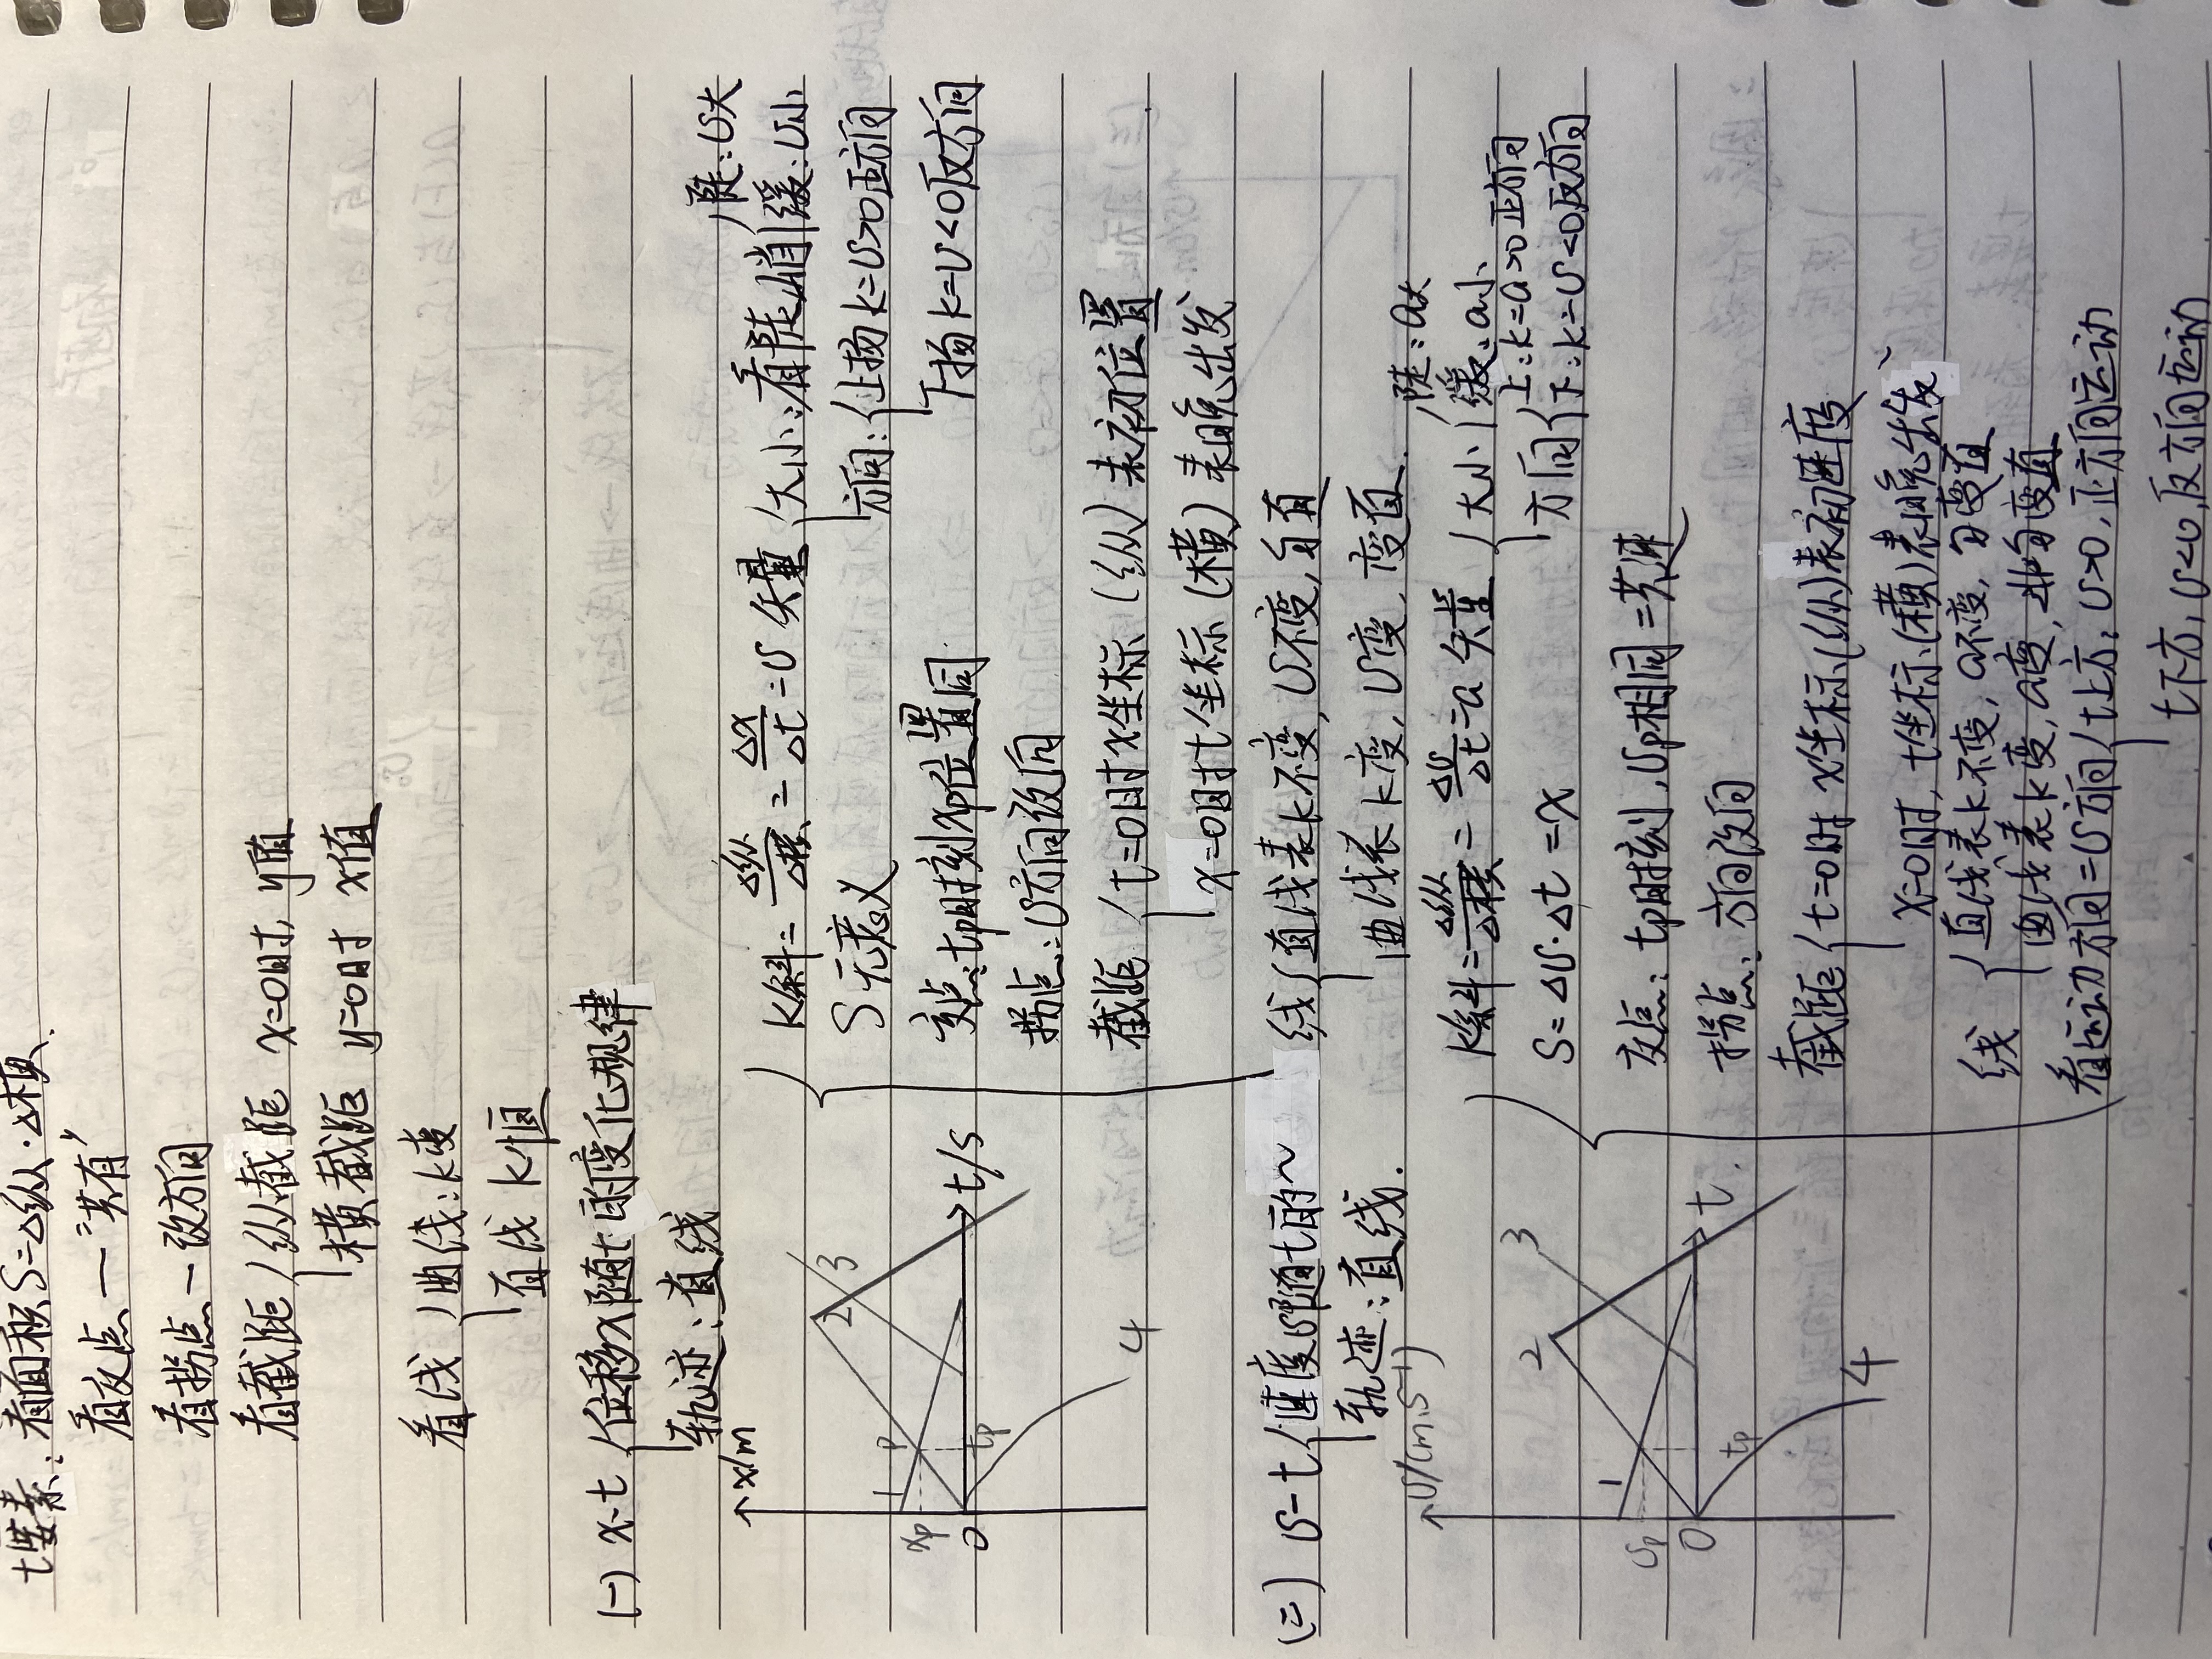 七要素:看面积S=△纵·△横.
看交点—“共有”
看拐点—改方向
看截距 纵截距 x=0时,y值
横截距 y=0时 x值
看线 曲线:k变
直线 k恒
(一) x-t 位移x随t的变化规律
轨迹:直线
x/m
1 P 2 3
xp
0 tp t/s
4
k斜=△纵/△横=△x/△t=v 矢量 大小:看陡峭 陡:v大
缓:v小
方向: 上扬k=v>0正方向
下扬k=v<0反方向
S 无意义
交点:tp时刻xp位置同
拐点:v方向改向
截距 t=0时x坐标(纵)表初位置
x=0时t坐标(横)表晚出发
线 直线表k不变,v不变,匀直
曲线表k变,v变,变直.
(二) v-t 速度v随t的~
轨迹:直线.
v/(m·s⁻¹)
1 2 3
vp
0 tp t
4
k斜=△纵/△横=△v/△t=a 矢量 大小 陡:a大
缓:a小
方向 上:k=a>0正方向
下:k=v<0反方向
S=△v·△t=x
交点:tp时刻,vp相同=共速
拐点:方向改向
截距 t=0时x坐标(纵)表初速度
x=0时,t坐标(横)表晚出发
线 直线表k不变,a不变,匀变直
曲线表k变,a变,非匀变直
看运动方向=v方向 t上方,v>0,正方向运动
t下方,v<0,反方向运动